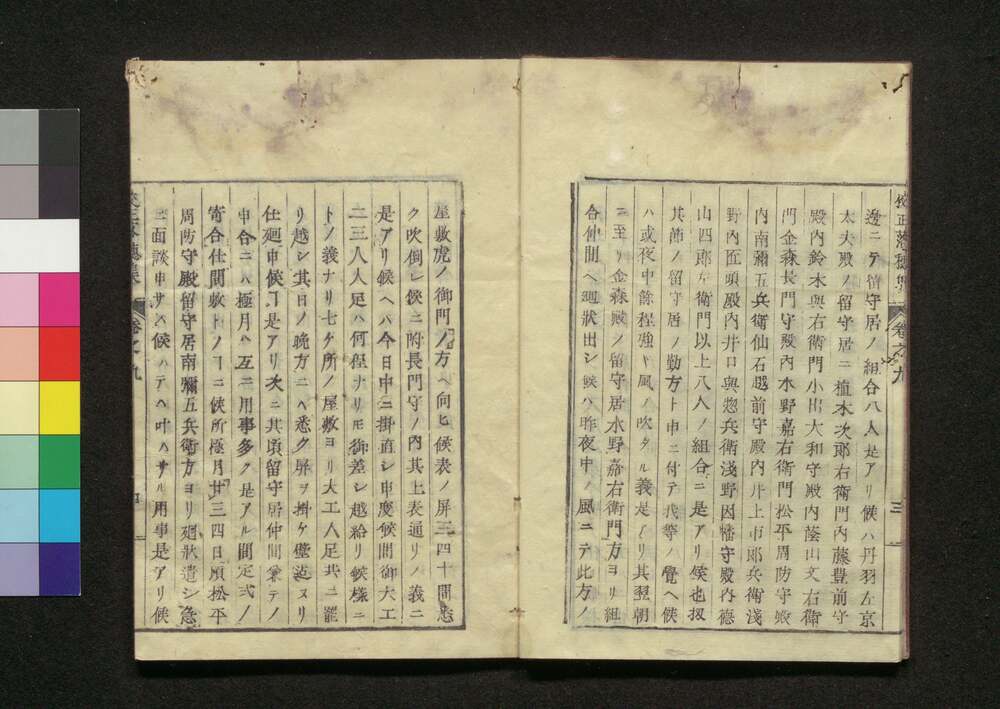 邊ニテ留守居ノ組合八人是アリ候ハ丹羽左京
太夫殿ノ留守居ニ植木次郎右衛門内藤豊前守
殿内鈴木與右衛門小出大和守殿内蔭山文右衛
門金森長門守殿内水野嘉右衛門松平周防守殿
内南彌五兵衛仙石越前守殿内井上市郎兵衛淺
野内匠頭殿内井口與惣兵衛淺野因幡守殿内德
山四郎左衛門以上八人ノ組合ニ是アリ候也扨
其節ノ留守居ノ勤方ト申ニ付テ我等ノ覺ヘ候
ハ或夜中餘程強キ風ノ吹タル義是アリ其翌朝
ニ至リ金森殿ノ留守居水野嘉右衛門方ヨリ組
合仲間ヘ廻狀出シ候ハ昨夜中ノ風ニテ此方ノ
三
屋敷虎ノ御門ノ方ヘ向ヒ候表ノ屏三四十間悉
ク吹倒レ候ニ附長門守ノ内其上表通リノ義ニ
是アリ候ヘハ今日中ニ掛直シ申度候間御大工
二三人人足ハ何程ナリモ御差シ越給リ候樣ニ
トノ義ナリ七ケ所ノ屋敷ヨリ大工人足共ニ罷
リ越シ其日ノ晩方ニハ悉ク屏ヲ掛ケ壁迄ヌリ
仕廻申候ヿ是アリ次ニ其頃留守居仲間兼テノ
申合ニハ極月ハ互ニ用事多ク是アル間定式ノ
寄合仕間敷トノヿニ候所極月廿三四日頃松平
周防守殿留守居南彌五兵衛方ヨリ廻狀遣シ急
ニ面談申サス候ハテハ叶ハサル用事是アリ候
卷之九